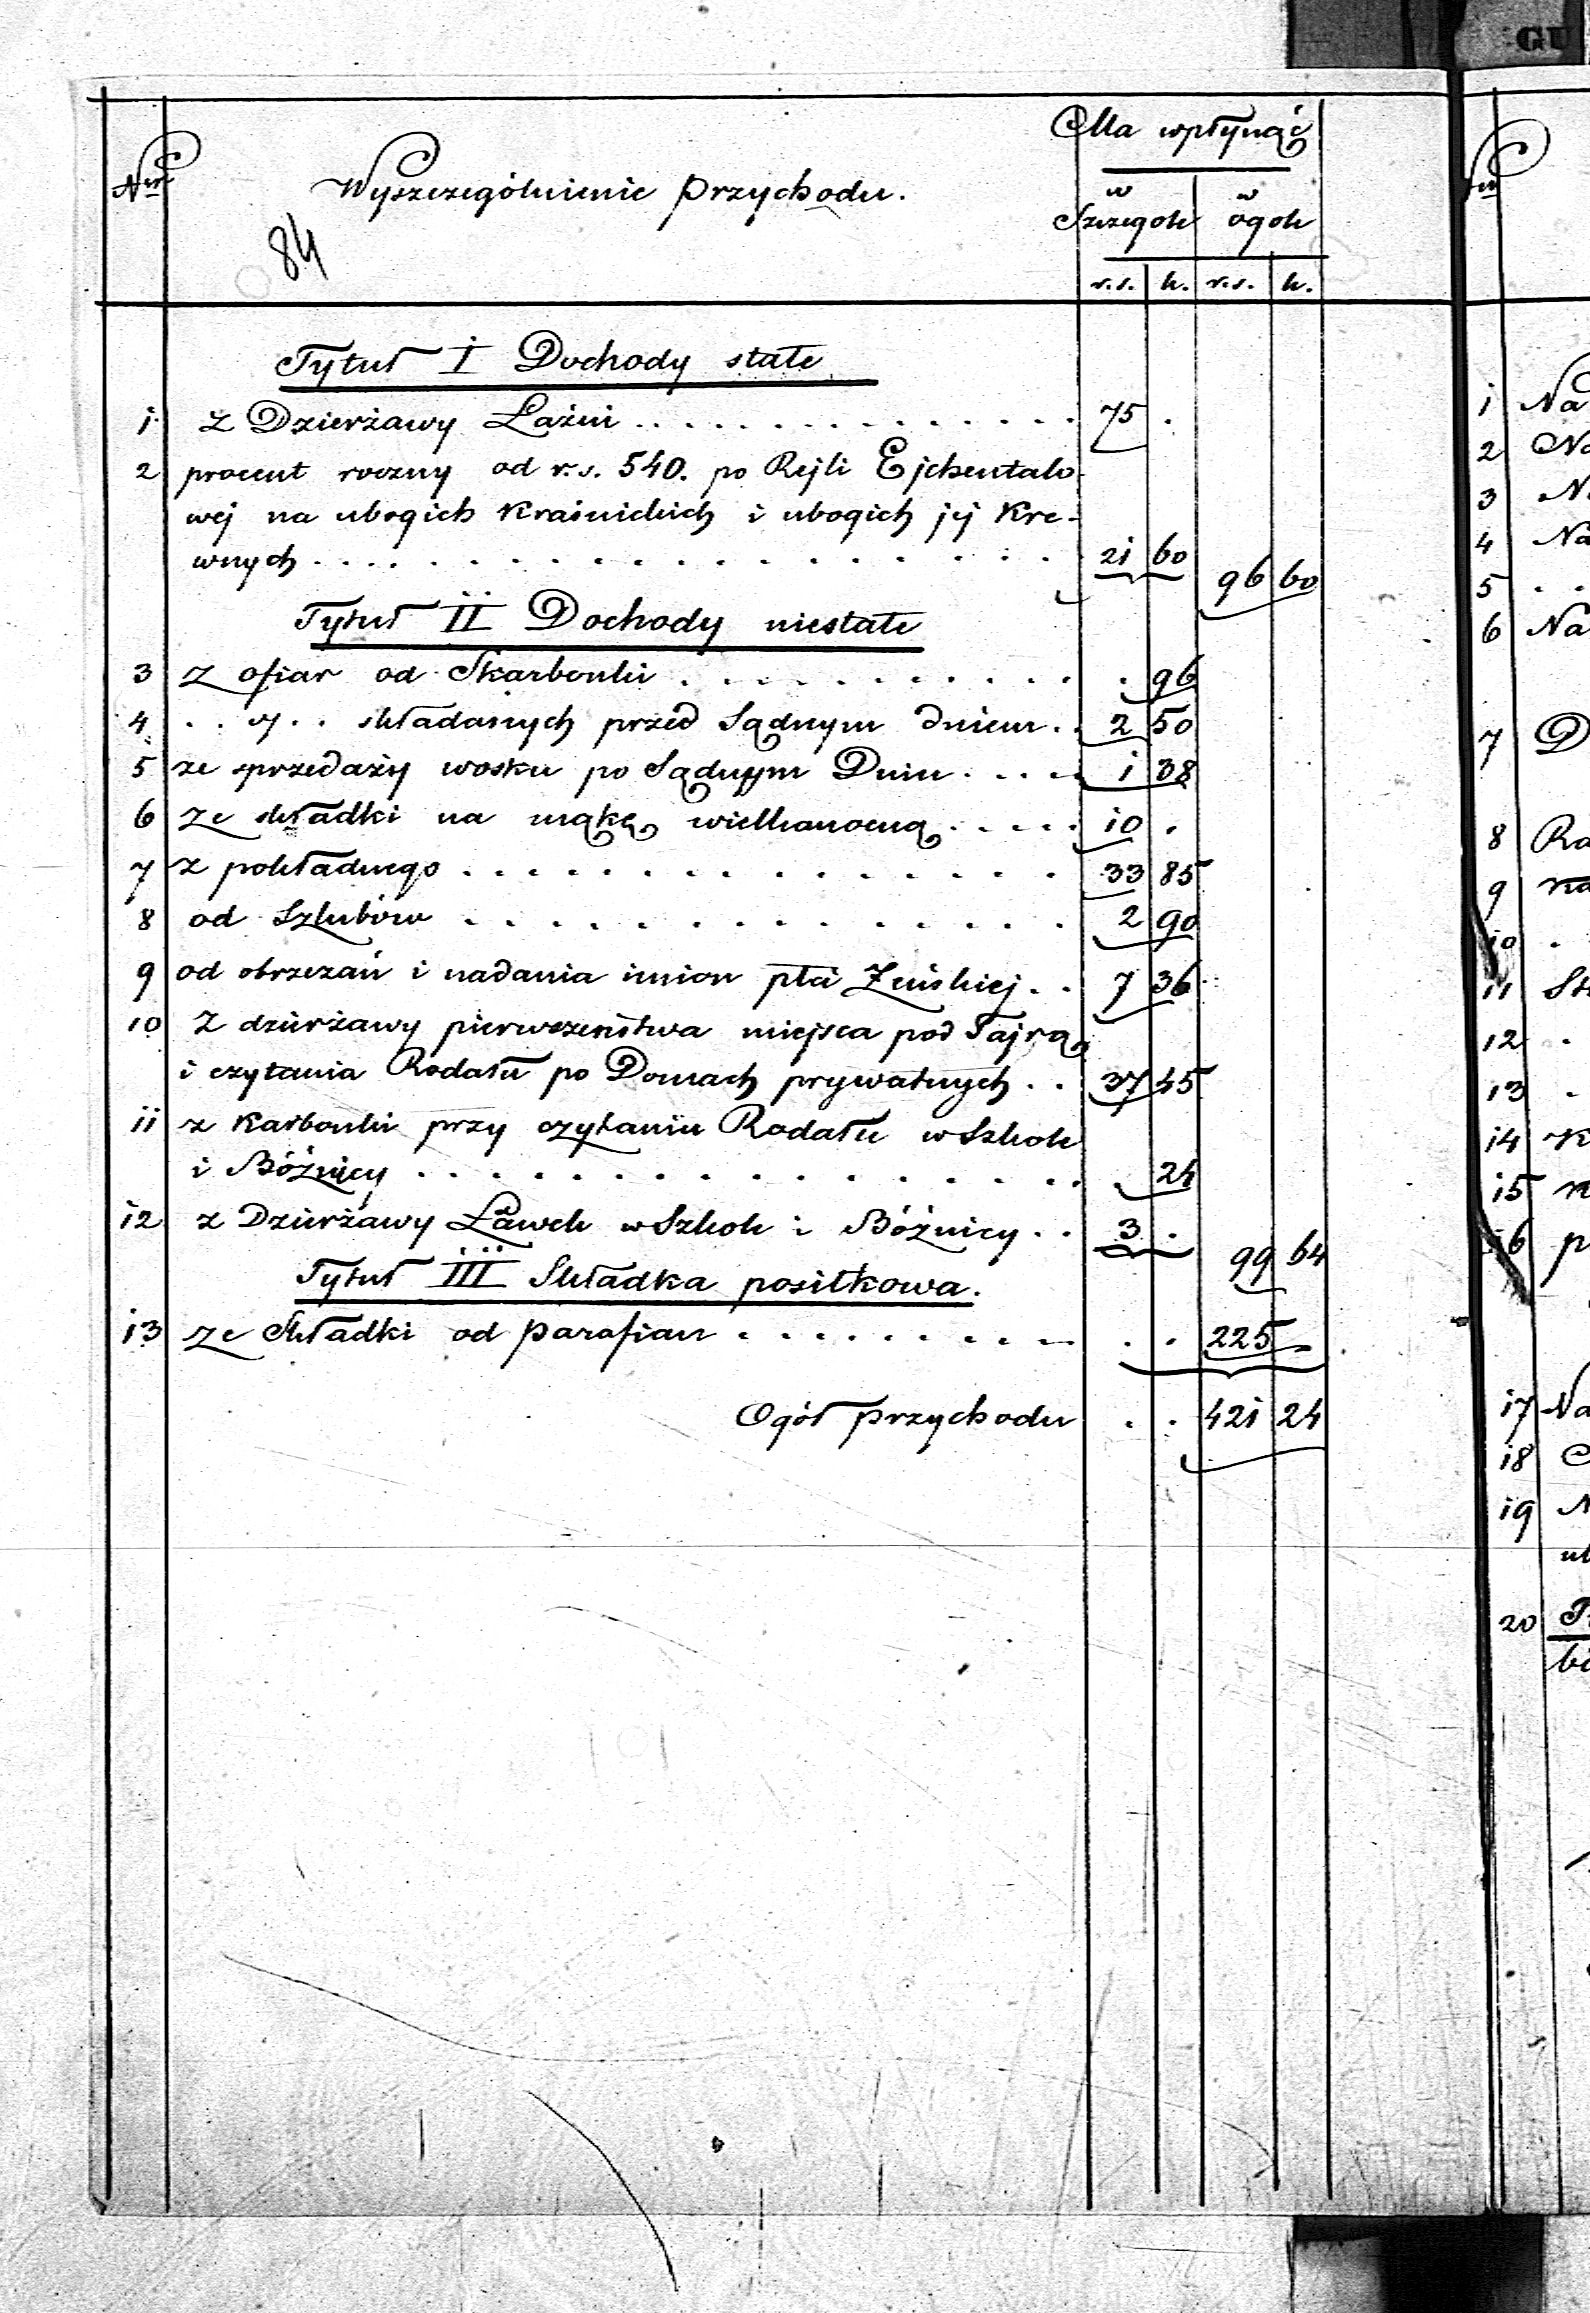 GU
Nr
Wyszczególnienie przychodu.
Ma wpłynąć
w Szczegole
w ogole
r.s. k. r.s. k.
84
Tytuł I Dochody stałe
1 z Dzierżawy Łaźni . . . . 75 .
2 procent roczny od r.s. 540. po Rejli Ejchentalo-
wej na ubogich Kraśnickich i ubogich jej Kre-
wnych . . . . 21 60 96 60
Tytuł II Dochody niestałe
3 z ofiar od Skarbonki . . . . . 96
4 . . „ . . składanych przed Sądnym dniem . . 2 50
5 ze sprzedaży wosku po Sądnym Dniu . . . . 1 38
6 ze składki na mąkę wielkanocną . . . . . 10 .
7 z pokładnego . . . . 33 85
8 od Szlubów . . . . 2 90
9 od obrzezań i nadania imion płci Żeńskiej . . 7 36
10 z dzierżawy pierwszeństwa miejsca pod Tajrą
i czytania Rodału po Domach prywatnych . . 37 45
11 z Karbonki przy czytaniu Rodału w Szkole
i Bóżnicy . . . . . 24
12 z Dzierżawy Ławek w Szkole i Bóżnicy . . 3 . 99 64
Tytuł III Składka posiłkowa.
13 ze Składki od parafian . . . . . . 225 -
Ogół przychodu . . 421 24
Nr
1 Na
2 Na
3 Na
4 Na
5 . .
6 Na
7 D
8 Ra
9 na
10 .
11 St
12 .
13 .
14 K
15
16 p
17 Na
18
19 N
20